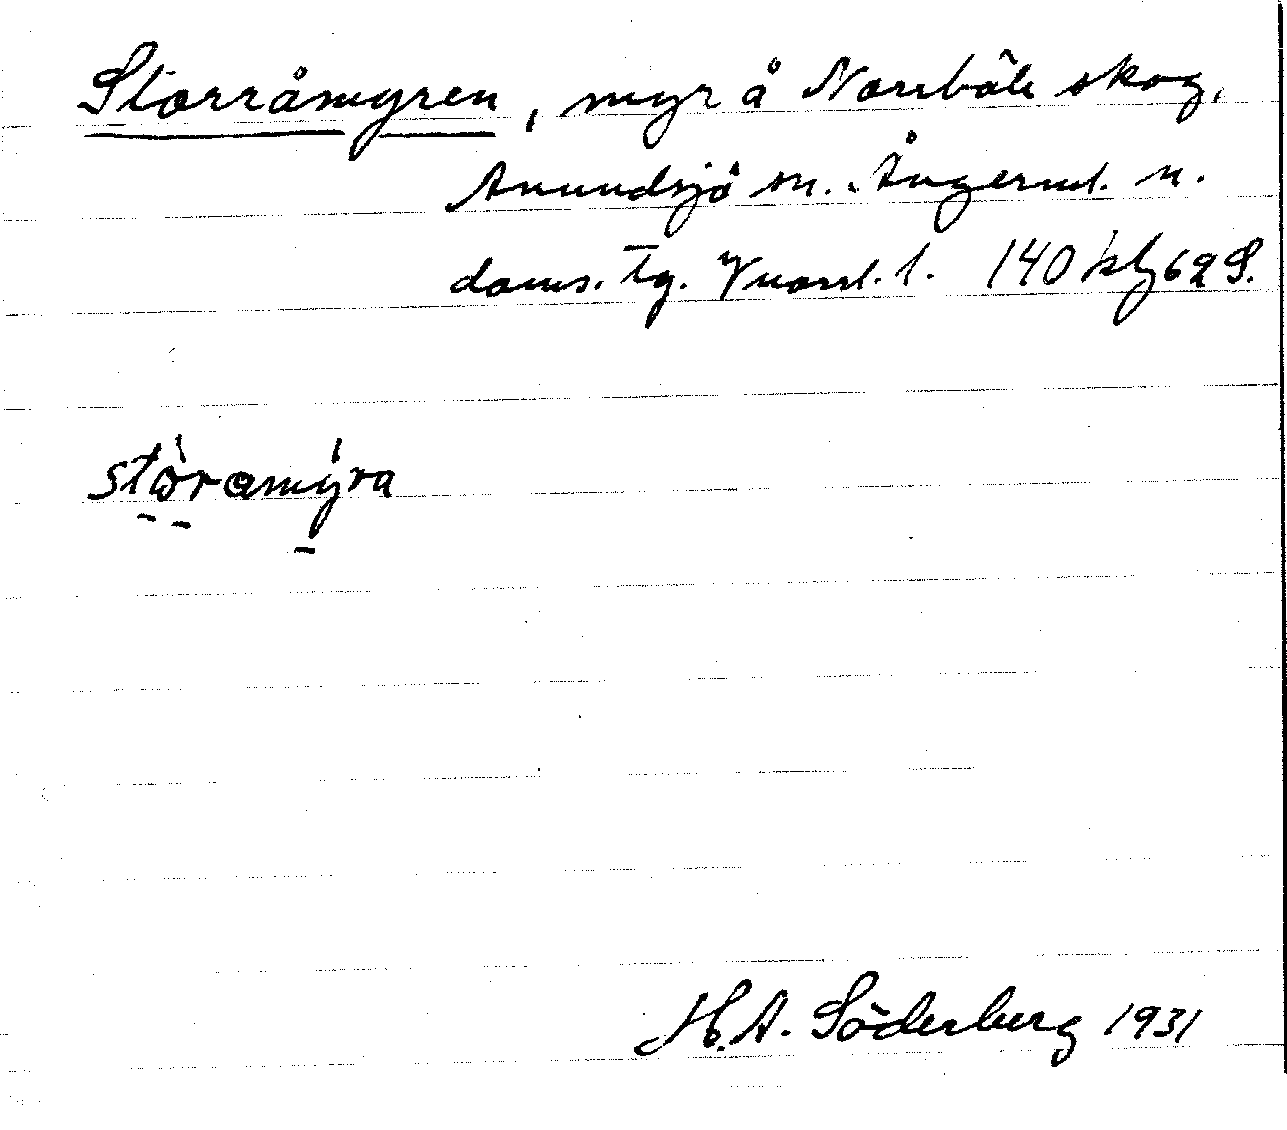 Storråmyren, myr å Norrböle skog,
Anundsjö sn. Ångerml. n.
doms. Tg. Vnorrl. l. 140 kbl 62 S.
störamyra
H. A. Söderberg 1931